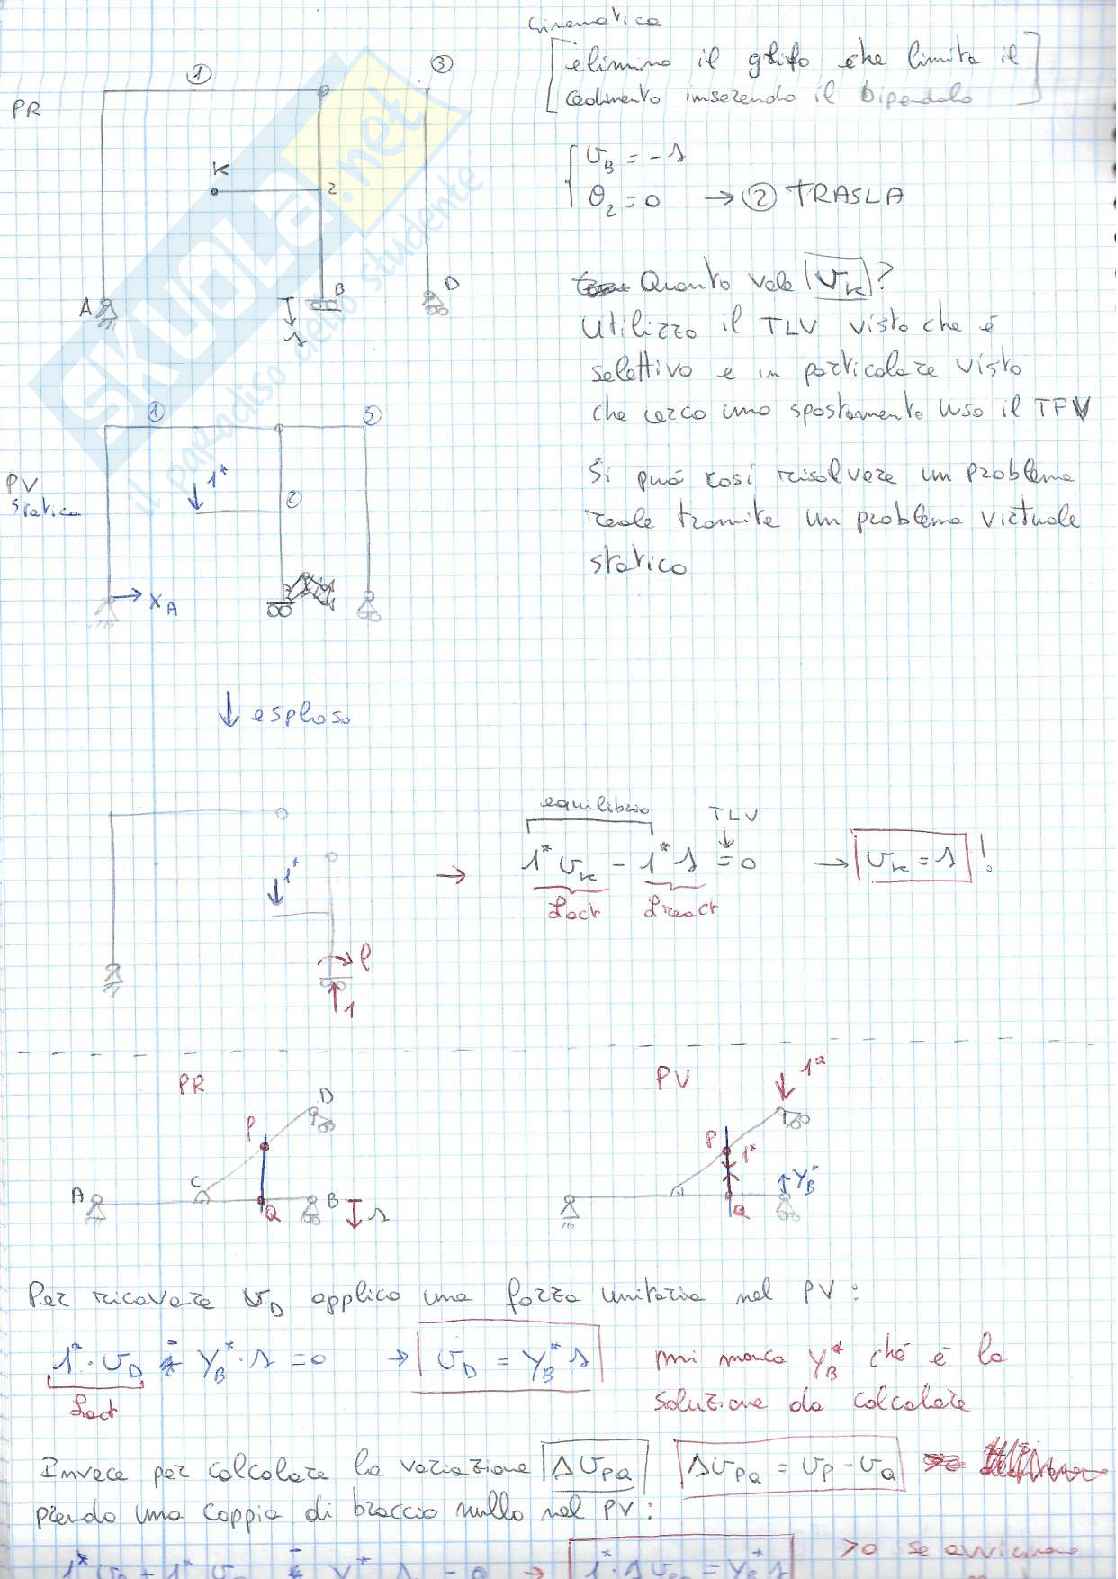 Cinematica
elimino il glifo che limita il
cedimento inserendo il bipendolo
PR
① ③
K
2
A B D
s
{ v_B = -s
θ_2 = 0 → ② TRASLA
Quanto vale v_K ?
Utilizzo il TLV visto che é
selettivo e in particolare visto
che cerco uno spostamento uso il TFV
Si puó cosí risolvere un problema
reale tramite un problema virtuale
statico
PV
statico
① 3
1*
2
X_A
↓ esploso
equilibrio TLV
→ 1* v_K - 1* s = 0 → v_K = s !
Lact Lreact
1*
l
1
PR
P D
A C Q B s
PV
1*
P 1*
Q Y_B*
Per ricavare v_D applico una forza unitaria nel PV :
1* · v_D - Y_B* · s = 0 → v_D = Y_B* s mi manca Y_B* ché é la
Lact soluzione da calcolare
Invece per calcolare la variazione Δv_PQ Δv_PQ = v_P - v_Q
prendo una coppia di braccio nullo nel PV :
→ 1* · Δv_PQ = Y_B* s >0 se